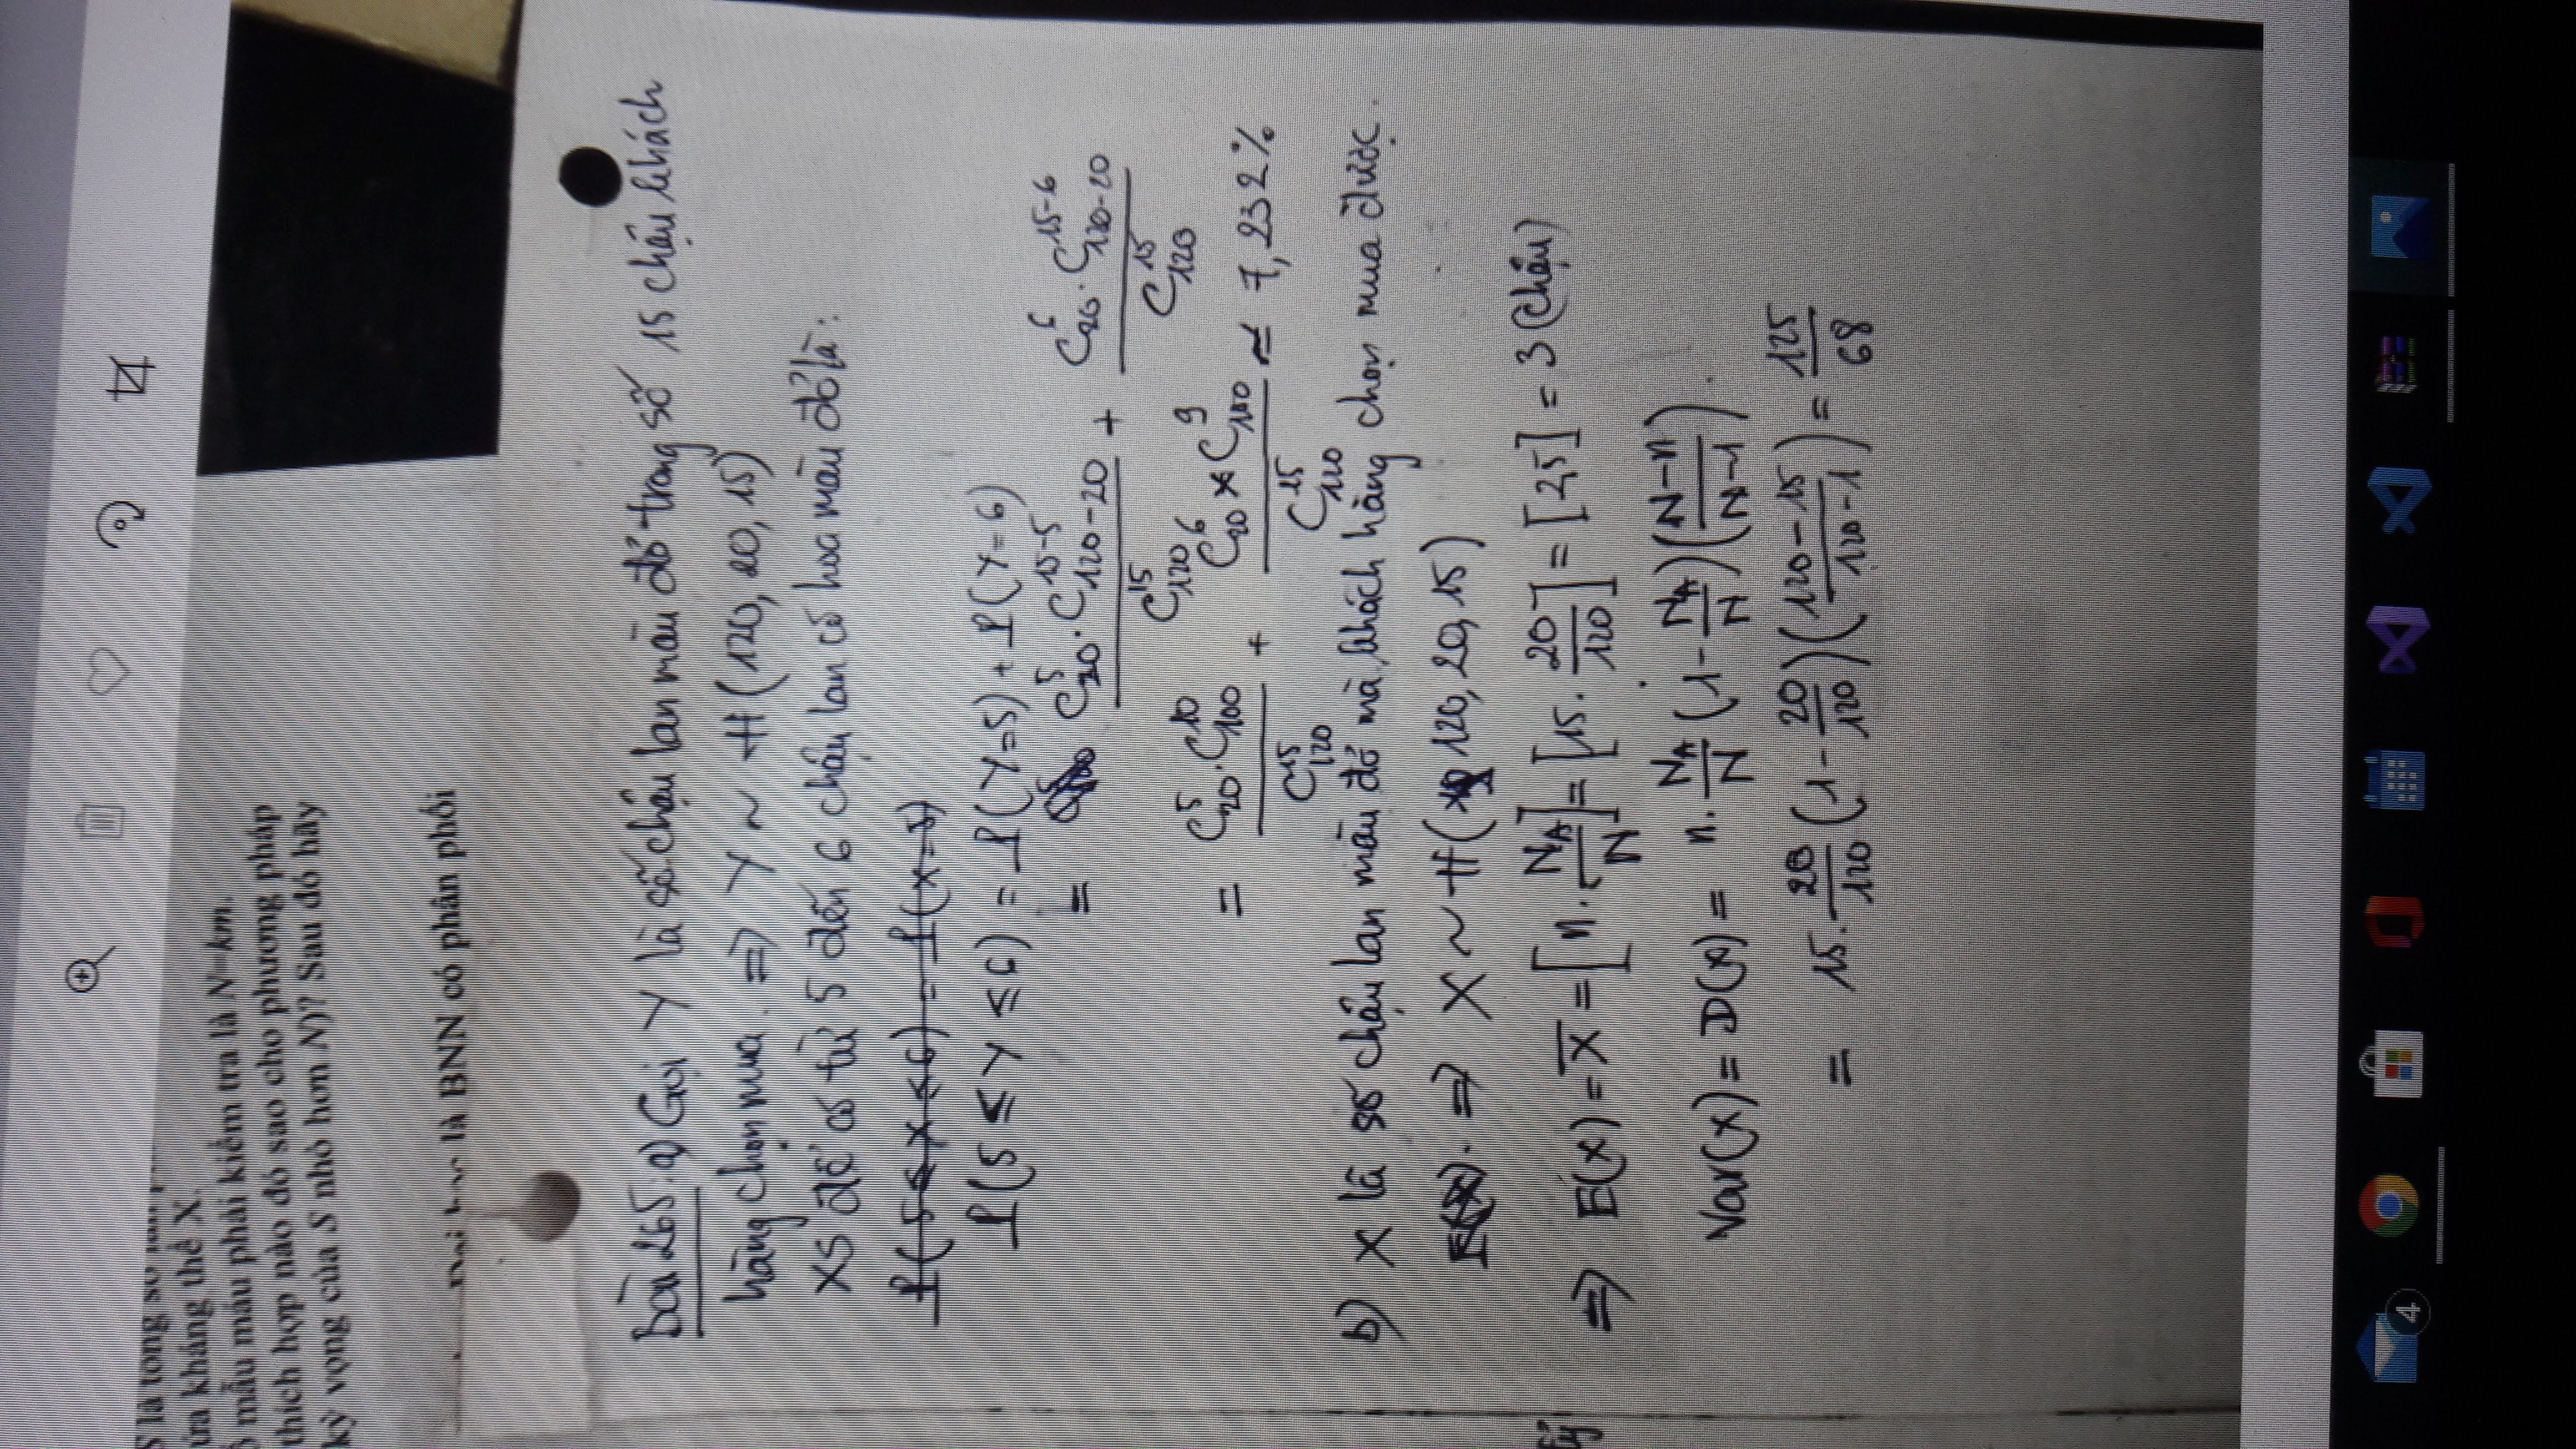 S là tổng số lần
ứa kháng thể X.
ố mẫu máu phải kiểm tra là N=km.
thích hợp nào đó sao cho phương pháp
kỳ vọng của S nhỏ hơn N)? Sau đó hãy
là BNN có phân phối
Bài 265. a) Gọi Y là số chậu lan màu đỏ trong số 15 chậu khách
hàng chọn mua. => Y ~ H(120, 20, 15)
XS để có từ 5 đến 6 chậu lan có hoa màu đỏ là:
P(5 ≤ X ≤ 6) = P(X=5)
P(5 ≤ Y ≤ 6) = P(Y=5) + P(Y=6)
= C_20^5 . C_{120-20}^{15-5} / C_120^15 + C_20^6 . C_{120-20}^{15-6} / C_120^15
= C_20^5 . C_100^10 / C_120^15 + C_20^6 × C_100^9 / C_120^15 ≈ 7,232%
b) X là số chậu lan màu đỏ mà khách hàng chọn mua được.
E(X). => X ~ H(120, 20, 15)
=> E(X) = X̄ = [n . N_A/N] = [15 . 20/120] = [2,5] = 3 (chậu)
Var(X) = D(X) = n . N_A/N (1 - N_A/N) ((N-n)/(N-1)).
= 15 . 20/120 (1 - 20/120) ((120-15)/(120-1)) = 125/68
4